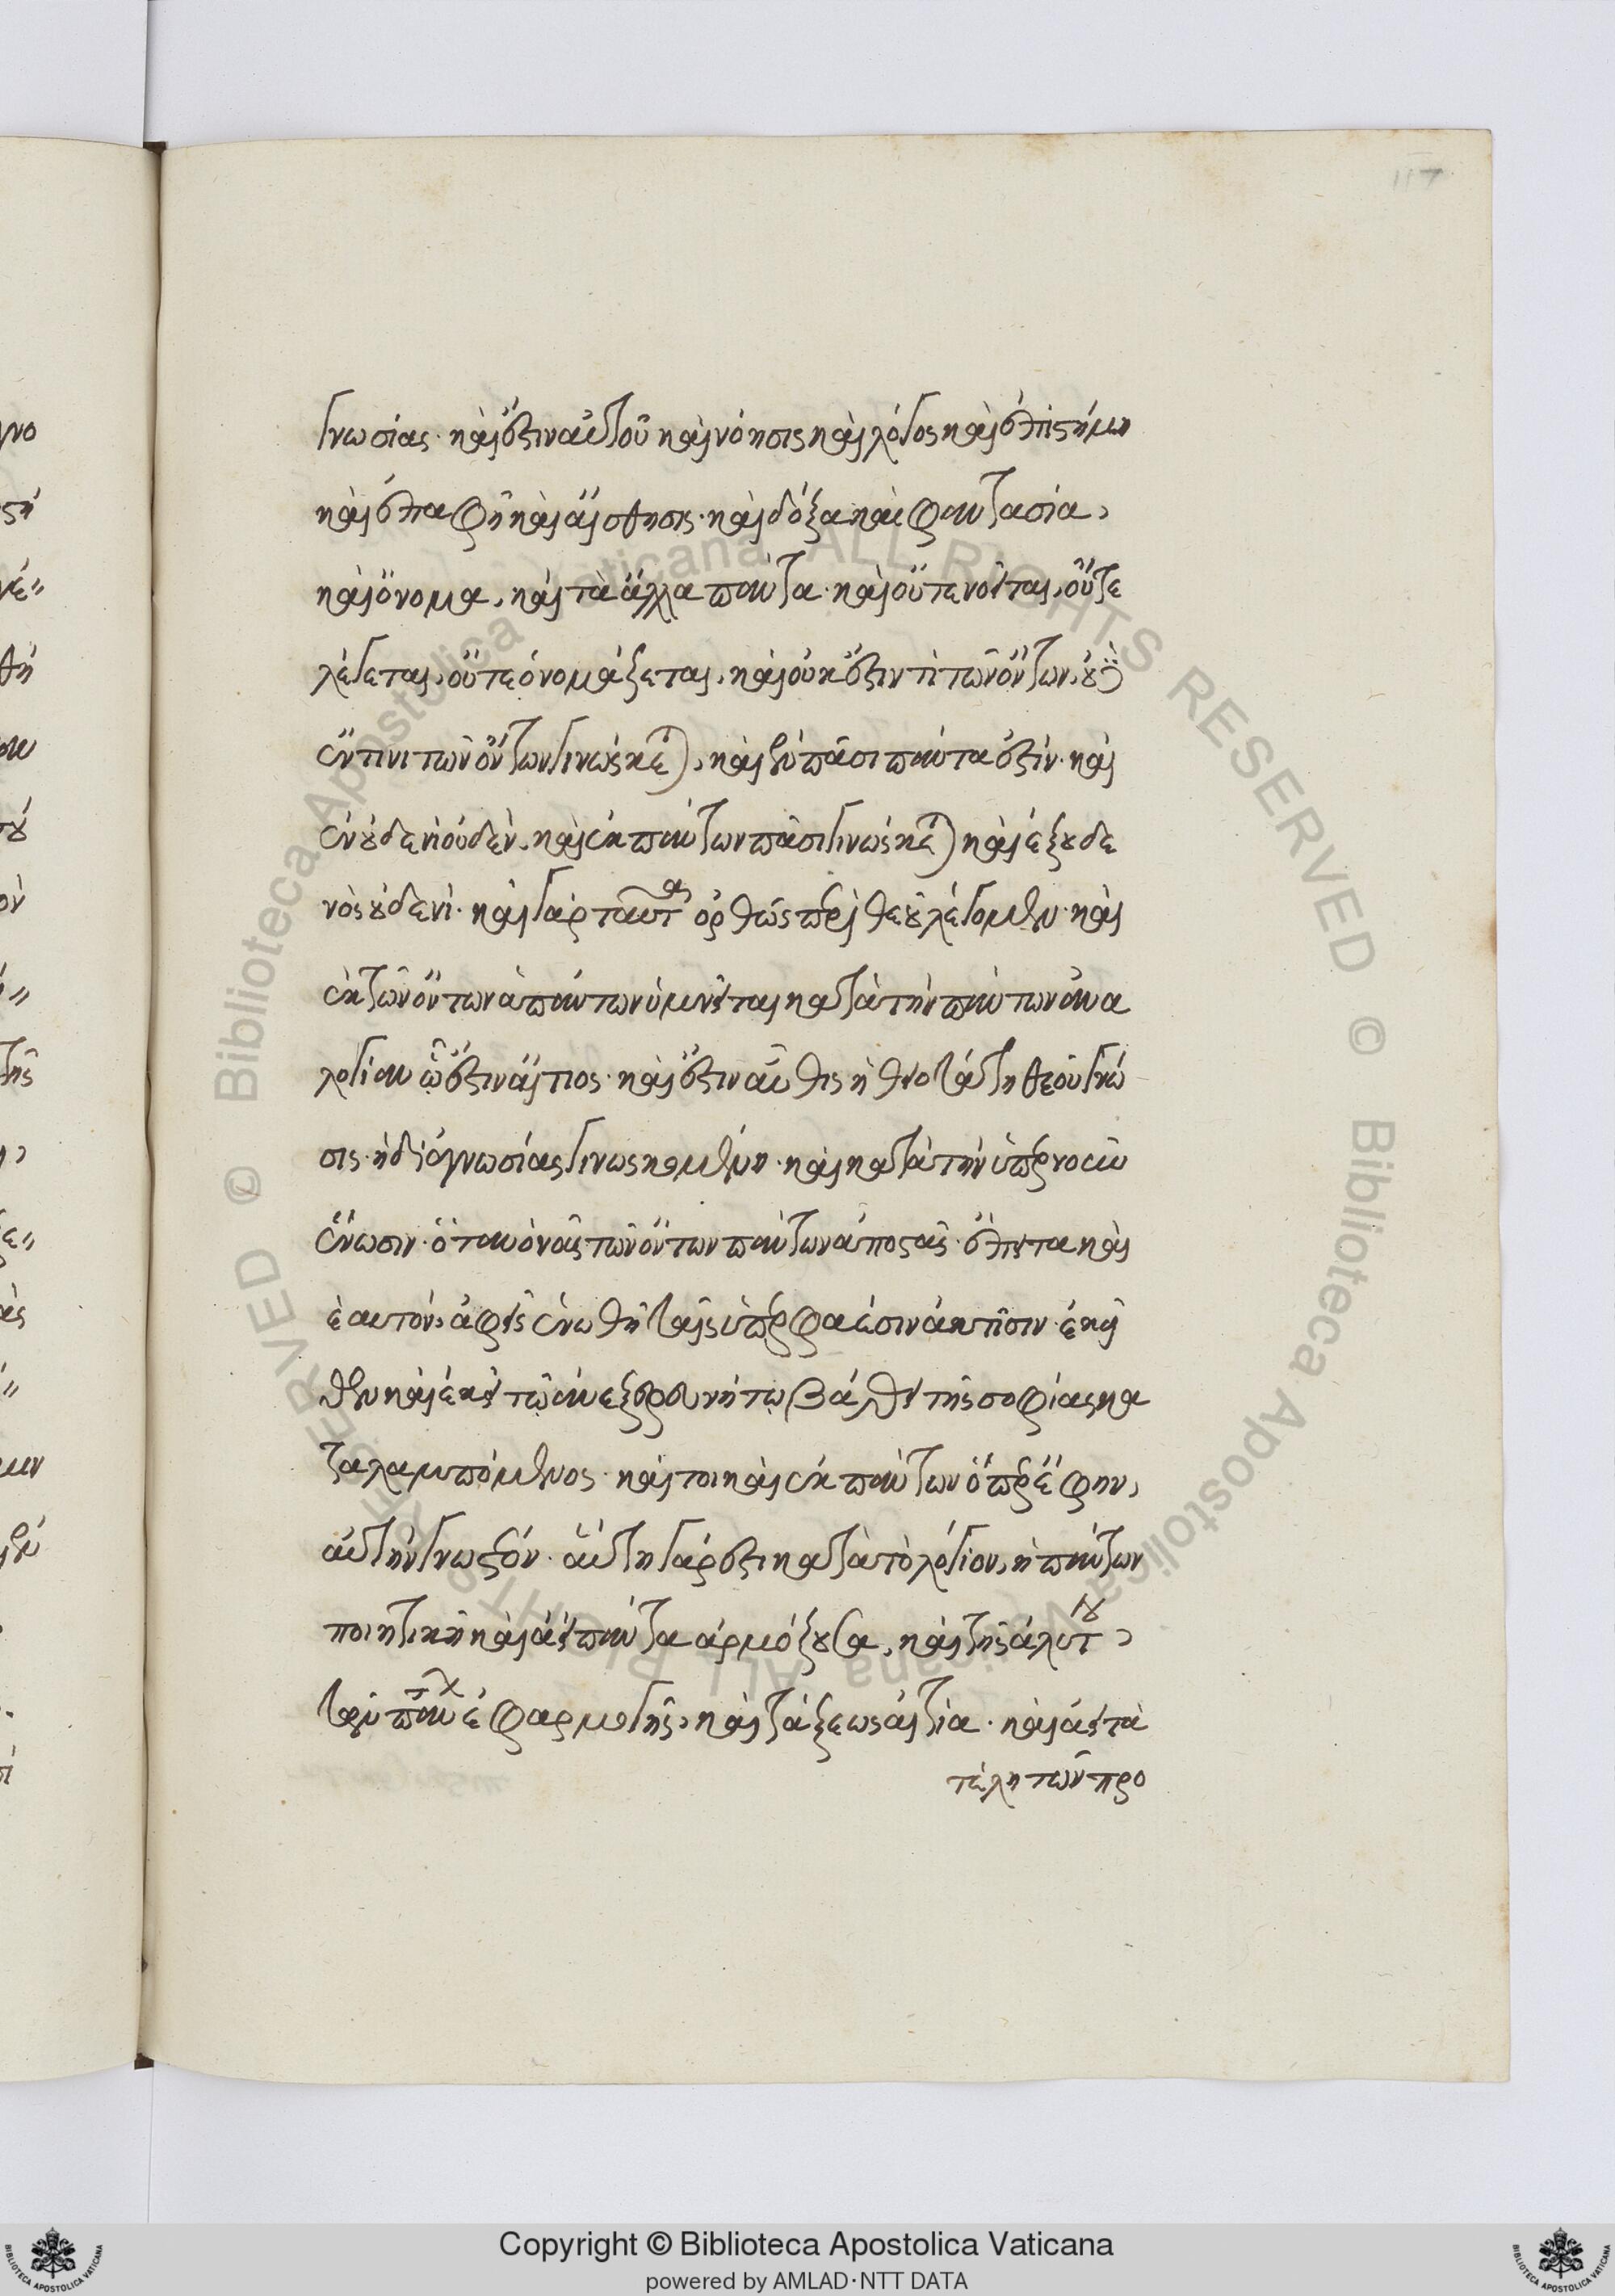 117
γνωσίας· καὶ ἔστιν αὐτοῦ καὶ νόησις καὶ λόγος καὶ ἐπιστήμη
καὶ ἐπαφὴ καὶ αἴσθησις· καὶ δόξα καὶ φαντασία,
καὶ ὄνομα, καὶ τὰ ἄλλα πάντα· καὶ οὔτε νοεῖται, οὔτε
λέγεται, οὔτε ὀνομάζεται, καὶ οὐκ ἔστιν τὶ τῶν ὄντων, οὐδὲ
ἔν τινι τῶν ὄντων γινώσκεται, καὶ ἐν πᾶσι πάντα ἐστίν· καὶ
ἐν οὐδενὶ οὐδὲν, καὶ ἐκ πάντων πᾶσι γινώσκεται καὶ ἐξ οὐδε
νὸς οὐδενί· καὶ γὰρ ταῦτα ὀρθῶς περὶ θεοῦ λέγομεν· καὶ
ἐκ τῶν ὄντων ἁπάντων ὑμνεῖται κατὰ τὴν πάντων ἀνα
λογίαν ὧν ἐστιν αἴτιος· καὶ ἔστιν αὖθις ἡ θειοτάτη θεοῦ γνῶ
σις· ἡ δι' ἀγνωσίας γινωσκομένη· καὶ κατὰ τὴν ὑπὲρ νοῦν
ἕνωσιν· ὅταν ὁ νοῦς τῶν ὄντων πάντων ἀποστὰς· ἔπειτα καὶ
ἑαυτὸν, ἀφεὶς ἑνωθῆ ταῖς ὑπερφαέσιν ἀκτῖσιν· ἐκεῖ
θεν καὶ ἐκεῖ τῷ ἀνεξερευνήτῳ βάθει τῆς σοφίας κα
ταλαμπόμενος· καίτοι καὶ ἐκ πάντων ὅπερ ἔφην,
αὐτὴν γνωστέον· αὕτη γάρ ἐστι κατὰ τὸ λόγιον, ἡ πάντων
ποιητικὴ καὶ ἀεὶ πάντα ἁρμόζουσα, καὶ τῆς ἀλύτου
τῶν πάντων ἐφαρμογῆς, καὶ τάξεως αἰτία· καὶ ἀεὶ τὰ
τέλη τῶν προ
Copyright © Biblioteca Apostolica Vaticana
powered by AMLAD·NTT DATA
© Biblioteca Apostolica Vaticana ALL RIGHTS RESERVED
© Biblioteca Apostolica Vaticana ALL RIGHTS RESERVED
BIBLIOTECA APOSTOLICA VATICANA
BIBLIOTECA APOSTOLICA VATICANA